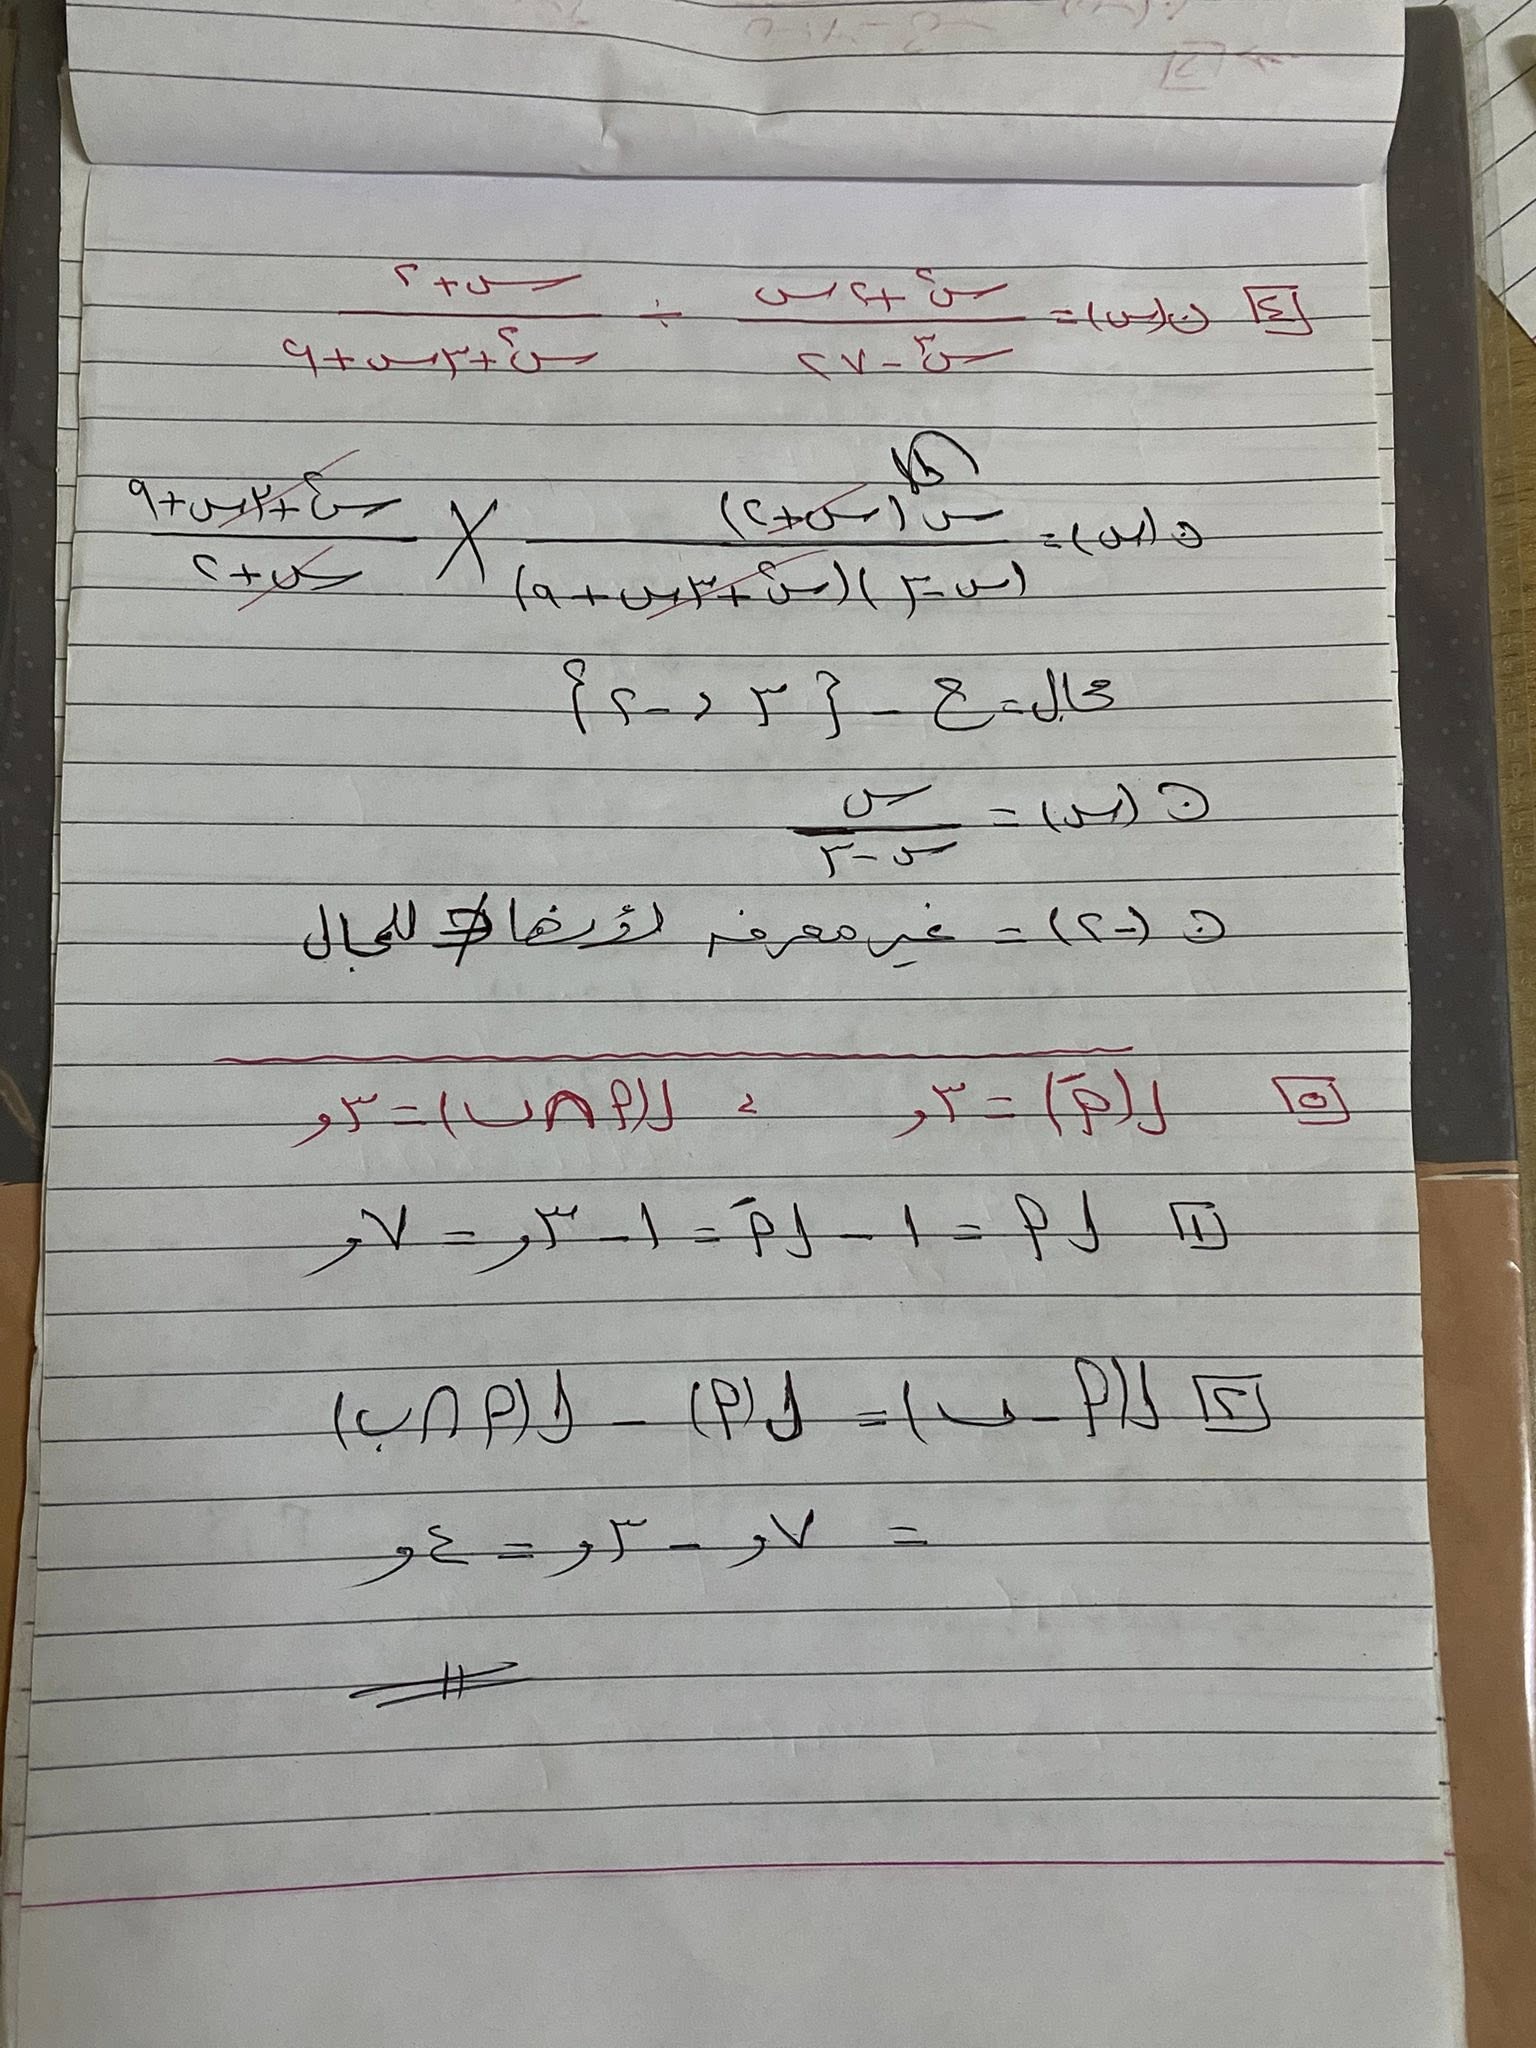 [٤] ن(س) = (س٢ + ٢س)/(س٣ - ٢٧) ÷ (س + ٢)/(س٢ + ٣س + ٩)
ن(س) = س(س + ٢)/((س - ٣)(س٢ + ٣س + ٩)) × (س٢ + ٣س + ٩)/(س + ٢)
مجال = ح - {٣ ، -٢}
ن(س) = س/(س - ٣)
ن(-٢) = غير معرفه لأنها ∌ للمجال
[٥] ل(أَ) = ٣و ، ل(أ ∩ ب) = ٣و
[١] ل أ = ١ - ل أَ = ١ - ٣و = ٧و
[٢] ل(أ - ب) = ل(أ) - ل(أ ∩ ب)
= ٧و - ٣و = ٤و